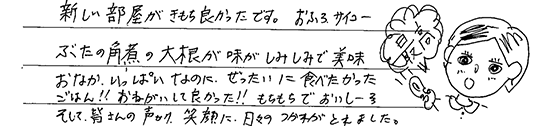 新しい部屋がきもち良かったです。おふろサイコー
ぶたの角煮の大根が味がしみしみで美味
おなか、いっぱいなのに、ぜったいに食べたかった
ごはん!!おねがいして良かった!!もちもちでおいしーる
そして、皆さんの声かけ、笑顔に、日々のつかれがとれました。